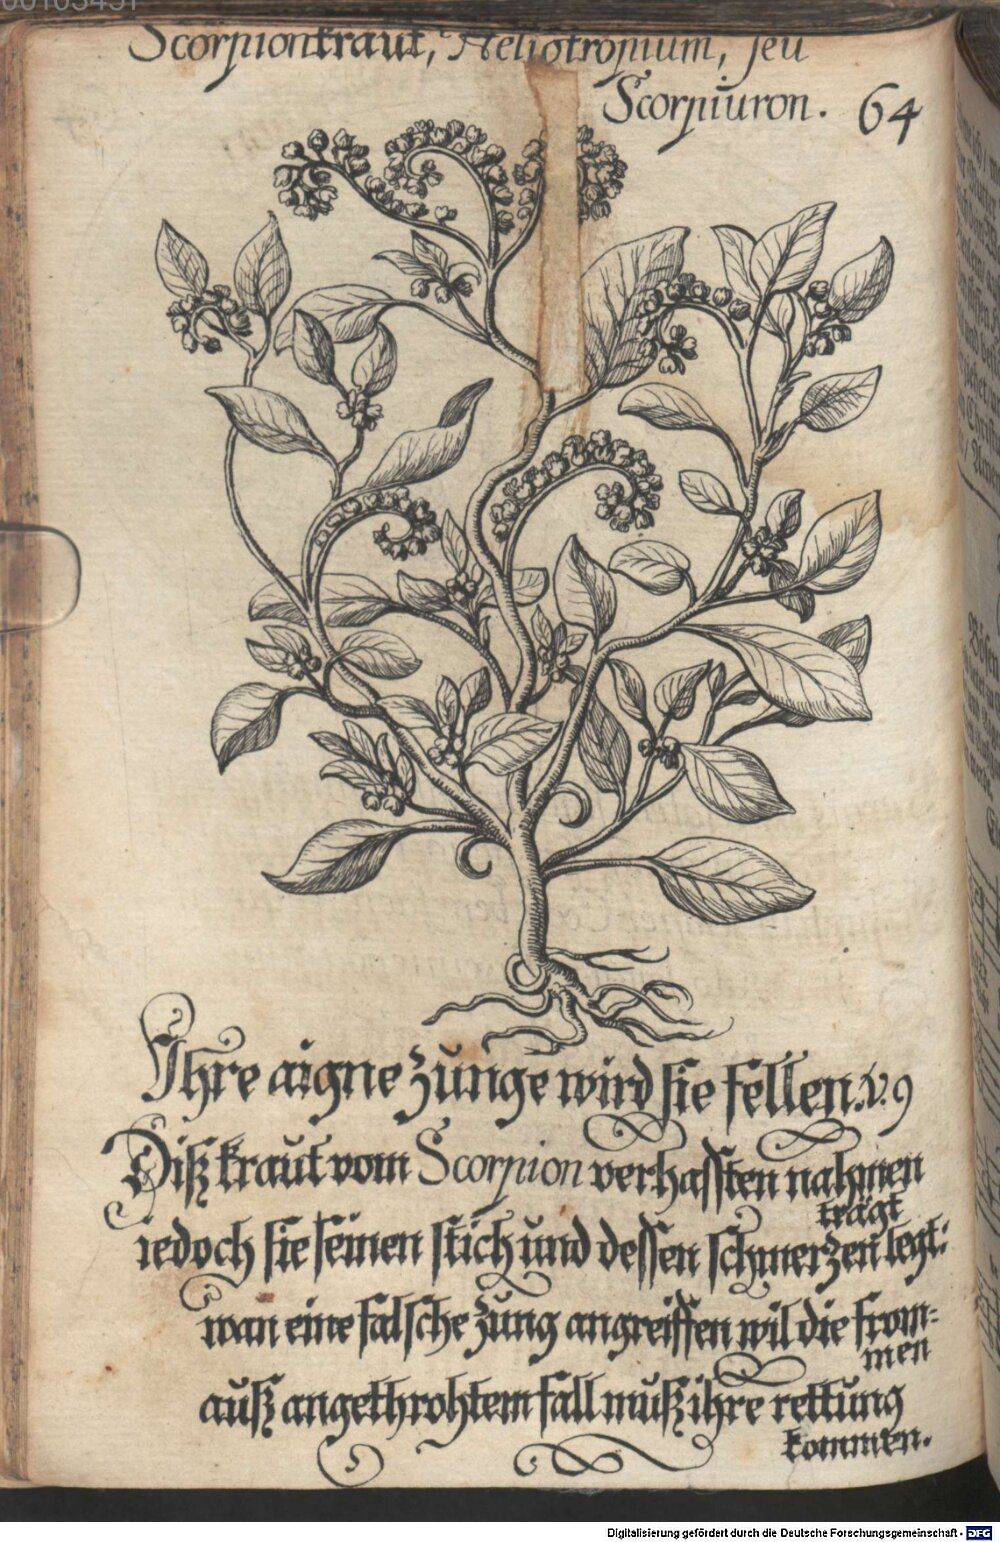 Scorpionkraut, Heliotropium, seu
Scorpiuron. 64
Ihre aigne zunge wird sie fellen. v. 9
Diß kraut vom Scorpion verhassten nahmen
trägt
iedoch sie seinen stich und dessen schmerzen legt:
wan eine falsche zung angreiffen wil die from-
men
auß angethrohtem fall muß ihre rettung
kommen.
Digitalisierung gefördert durch die Deutsche Forschungsgemeinschaft - DFG